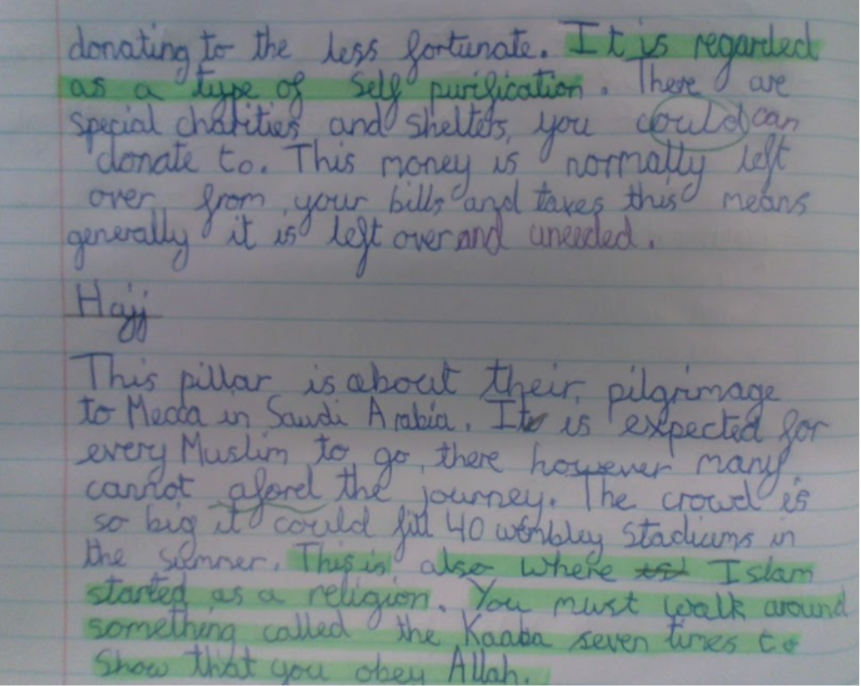 donating to the less fortunate. It is regarded
as a type of self purification. There are
special charities and shelters, you could can
donate to. This money is normally left
over from your bills and taxes this means
generally it is left over and uneeded.
Hajj
This pillar is about their pilgrimage
to Mecca in Saudi Arabia. It is expected for
every Muslim to go there however many
cannot aford the journey. The crowd is
so big it could fill 40 wembley stadiums in
the summer. This is also where Islam
started as a religion. You must walk around
something called the Kaaba seven times to
show that you obey Allah.